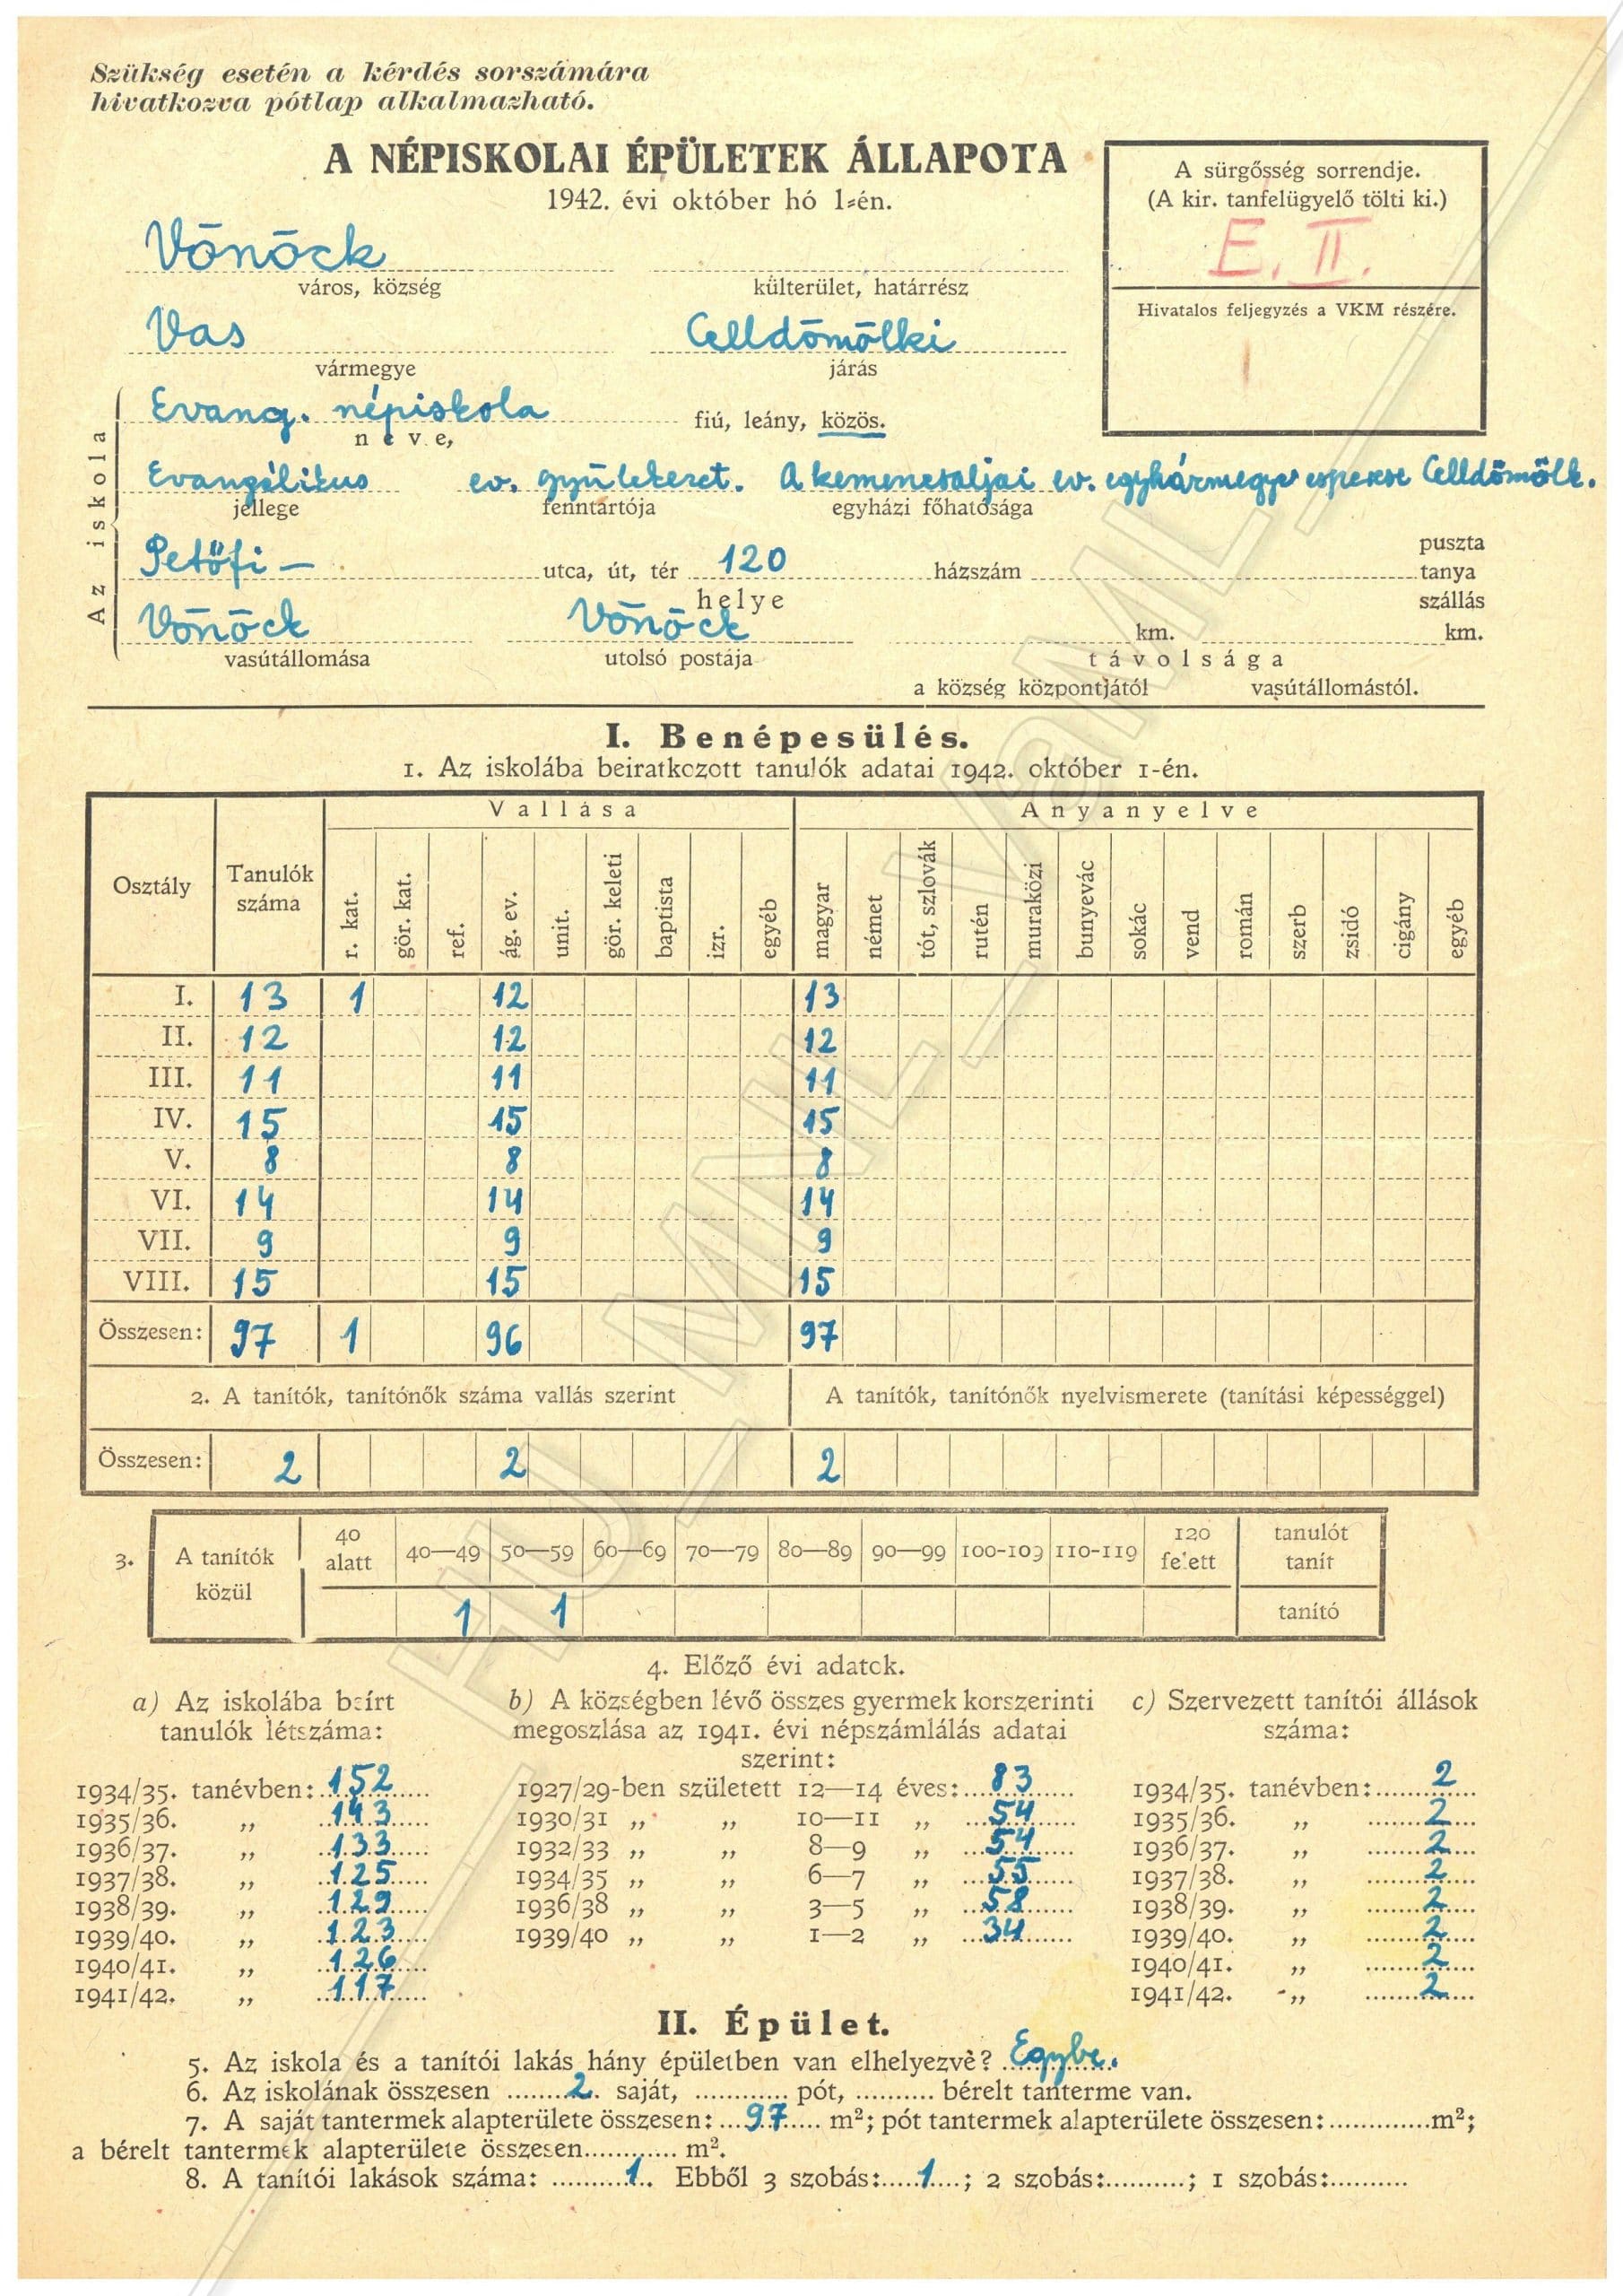 Szükség esetén a kérdés sorszámára
hivatkozva pótlap alkalmazható.
A NÉPISKOLAI ÉPÜLETEK ÁLLAPOTA
1942. évi október hó 1-én.
A sürgősség sorrendje.
(A kir. tanfelügyelő tölti ki.)
E. II.
Hivatalos feljegyzés a VKM részére.
Vönöck
város, község külterület, határrész
Vas Celldömölki
vármegye járás
Az iskola
Evang. népiskola fiú, leány, közös.
neve,
Evangélikus ev. gyülekezet. A kemenesaljai ev. egyházmegye esperese Celldömölk.
jellege fenntartója egyházi főhatósága
Petőfi — utca, út, tér 120 házszám puszta
tanya
szállás
helye
Vönöck Vönöck km. km.
vasútállomása utolsó postája távolsága
a község központjától vasútállomástól.
I. Benépesülés.
1. Az iskolába beiratkozott tanulók adatai 1942. október 1-én.
Osztály Tanulók száma Vallása Anyanyelve
r. kat. gör. kat. ref. ág. ev. unit. gör. keleti baptista izr. egyéb magyar német tót, szlovák rutén muraközi bunyevác sokác vend román szerb zsidó cigány egyéb
I. 13 1 12 13
II. 12 12 12
III. 11 11 11
IV. 15 15 15
V. 8 8 8
VI. 14 14 14
VII. 9 9 9
VIII. 15 15 15
Összesen: 97 1 96 97
2. A tanítók, tanítónők száma vallás szerint A tanítók, tanítónők nyelvismerete (tanítási képességgel)
Összesen: 2 2 2
3. A tanítók közül 40 alatt 40—49 50—59 60—69 70—79 80—89 90—99 100-109 110-119 120 felett tanulót tanít
1 1 tanító
4. Előző évi adatok.
a) Az iskolába beírt
tanulók létszáma:
1934/35. tanévben: 152
1935/36. „ 143
1936/37. „ 133
1937/38. „ 125
1938/39. „ 129
1939/40. „ 123
1940/41. „ 126
1941/42. „ 117
b) A községben lévő összes gyermek korszerinti
megoszlása az 1941. évi népszámlálás adatai
szerint:
1927/29-ben született 12—14 éves: 83
1930/31 „ „ 10—11 „ 54
1932/33 „ „ 8—9 „ 54
1934/35 „ „ 6—7 „ 55
1936/38 „ „ 3—5 „ 58
1939/40 „ „ 1—2 „ 34
c) Szervezett tanítói állások
száma:
1934/35. tanévben: 2
1935/36. „ 2
1936/37. „ 2
1937/38. „ 2
1938/39. „ 2
1939/40. „ 2
1940/41. „ 2
1941/42. „ 2
II. Épület.
5. Az iskola és a tanítói lakás hány épületben van elhelyezve? Egybe.
6. Az iskolának összesen 2 saját, pót, bérelt tanterme van.
7. A saját tantermek alapterülete összesen: 97 m²; pót tantermek alapterülete összesen: m²;
a bérelt tantermek alapterülete összesen m².
8. A tanítói lakások száma: 1. Ebből 3 szobás: 1; 2 szobás: ; 1 szobás:
HU_MNL_VaML